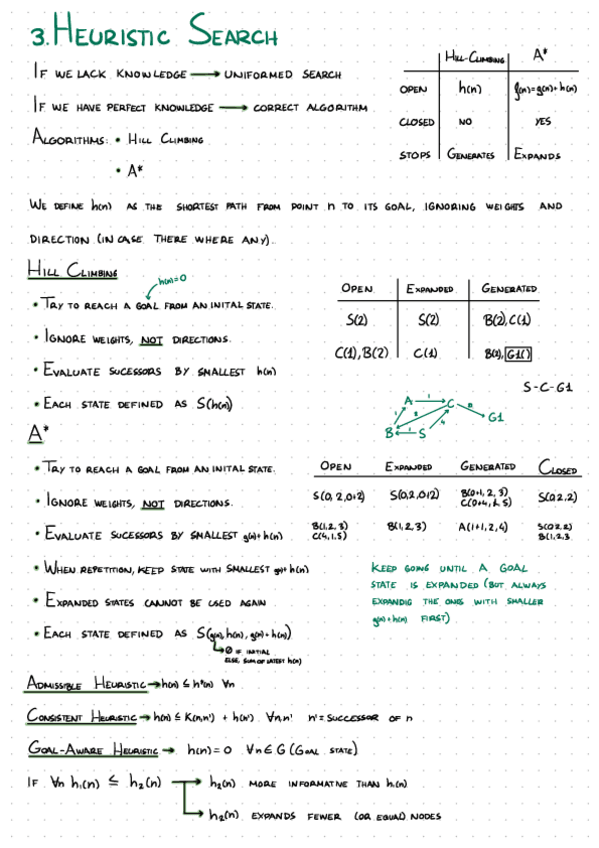 3. HEURISTIC SEARCH
IF WE LACK KNOWLEDGE → UNIFORMED SEARCH
IF WE HAVE PERFECT KNOWLEDGE → CORRECT ALGORITHM
ALGORITHMS: • HILL CLIMBING
• A*
HILL-CLIMBING A*
OPEN h(n) f(n)=g(n)+h(n)
CLOSED NO YES
STOPS GENERATES EXPANDS
WE DEFINE h(n) AS THE SHORTEST PATH FROM POINT n TO ITS GOAL, IGNORING WEIGHTS AND
DIRECTION (IN CASE THERE WHERE ANY).
HILL CLIMBING
h(n)=0
• TRY TO REACH A GOAL FROM AN INITAL STATE.
• IGNORE WEIGHTS, NOT DIRECTIONS.
• EVALUATE SUCESSORS BY SMALLEST h(n)
• EACH STATE DEFINED AS S(h(n))
OPEN EXPANDED GENERATED
S(2) S(2) B(2), C(1)
C(1), B(2) C(1) B(2), G1()
S-C-G1
A 1 C
G1
B 1 S 4
A*
• TRY TO REACH A GOAL FROM AN INITAL STATE.
• IGNORE WEIGHTS, NOT DIRECTIONS.
• EVALUATE SUCESSORS BY SMALLEST g(n)+h(n)
• WHEN REPETITION, KEEP STATE WITH SMALLEST g(n)+h(n)
• EXPANDED STATES CANNOT BE USED AGAIN
• EACH STATE DEFINED AS S(g(n), h(n), g(n)+h(n))
0 IF INITIAL
ELSE, SUM OF LATEST h(n)
OPEN EXPANDED GENERATED CLOSED
S(0, 2, 0+2) S(0,2,0+2) B(0+1, 2, 3) S(0,2,2)
C(0+4, 1, 5)
B(1, 2, 3) B(1,2,3) A(1+1, 2, 4) S(0,2,2)
C(4,1,5) B(1,2,3
KEEP GOING UNTIL A GOAL
STATE IS EXPANDED (BUT ALWAYS
EXPANDIG THE ONES WITH SMALLER
g(n)+h(n) FIRST)
ADMISSIBLE HEURISTIC → h(n) ≤ h*(n) ∀n
CONSISTENT HEURISTIC → h(n) ≤ K(n,n') + h(n') ∀n,n' n'=SUCCESSOR OF n
GOAL-AWARE HEURISTIC → h(n)=0 ∀n∈G (GOAL STATE)
IF ∀n h₁(n) ≤ h₂(n) → h₂(n) MORE INFORMATIVE THAN h₁(n)
→ h₂(n) EXPANDS FEWER (OR EQUAL) NODES